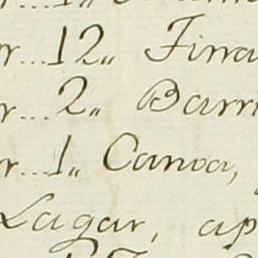 r... 12,, Tirra
r... 2,, Barri
r... 1,, Canoa,
Lagar, ap